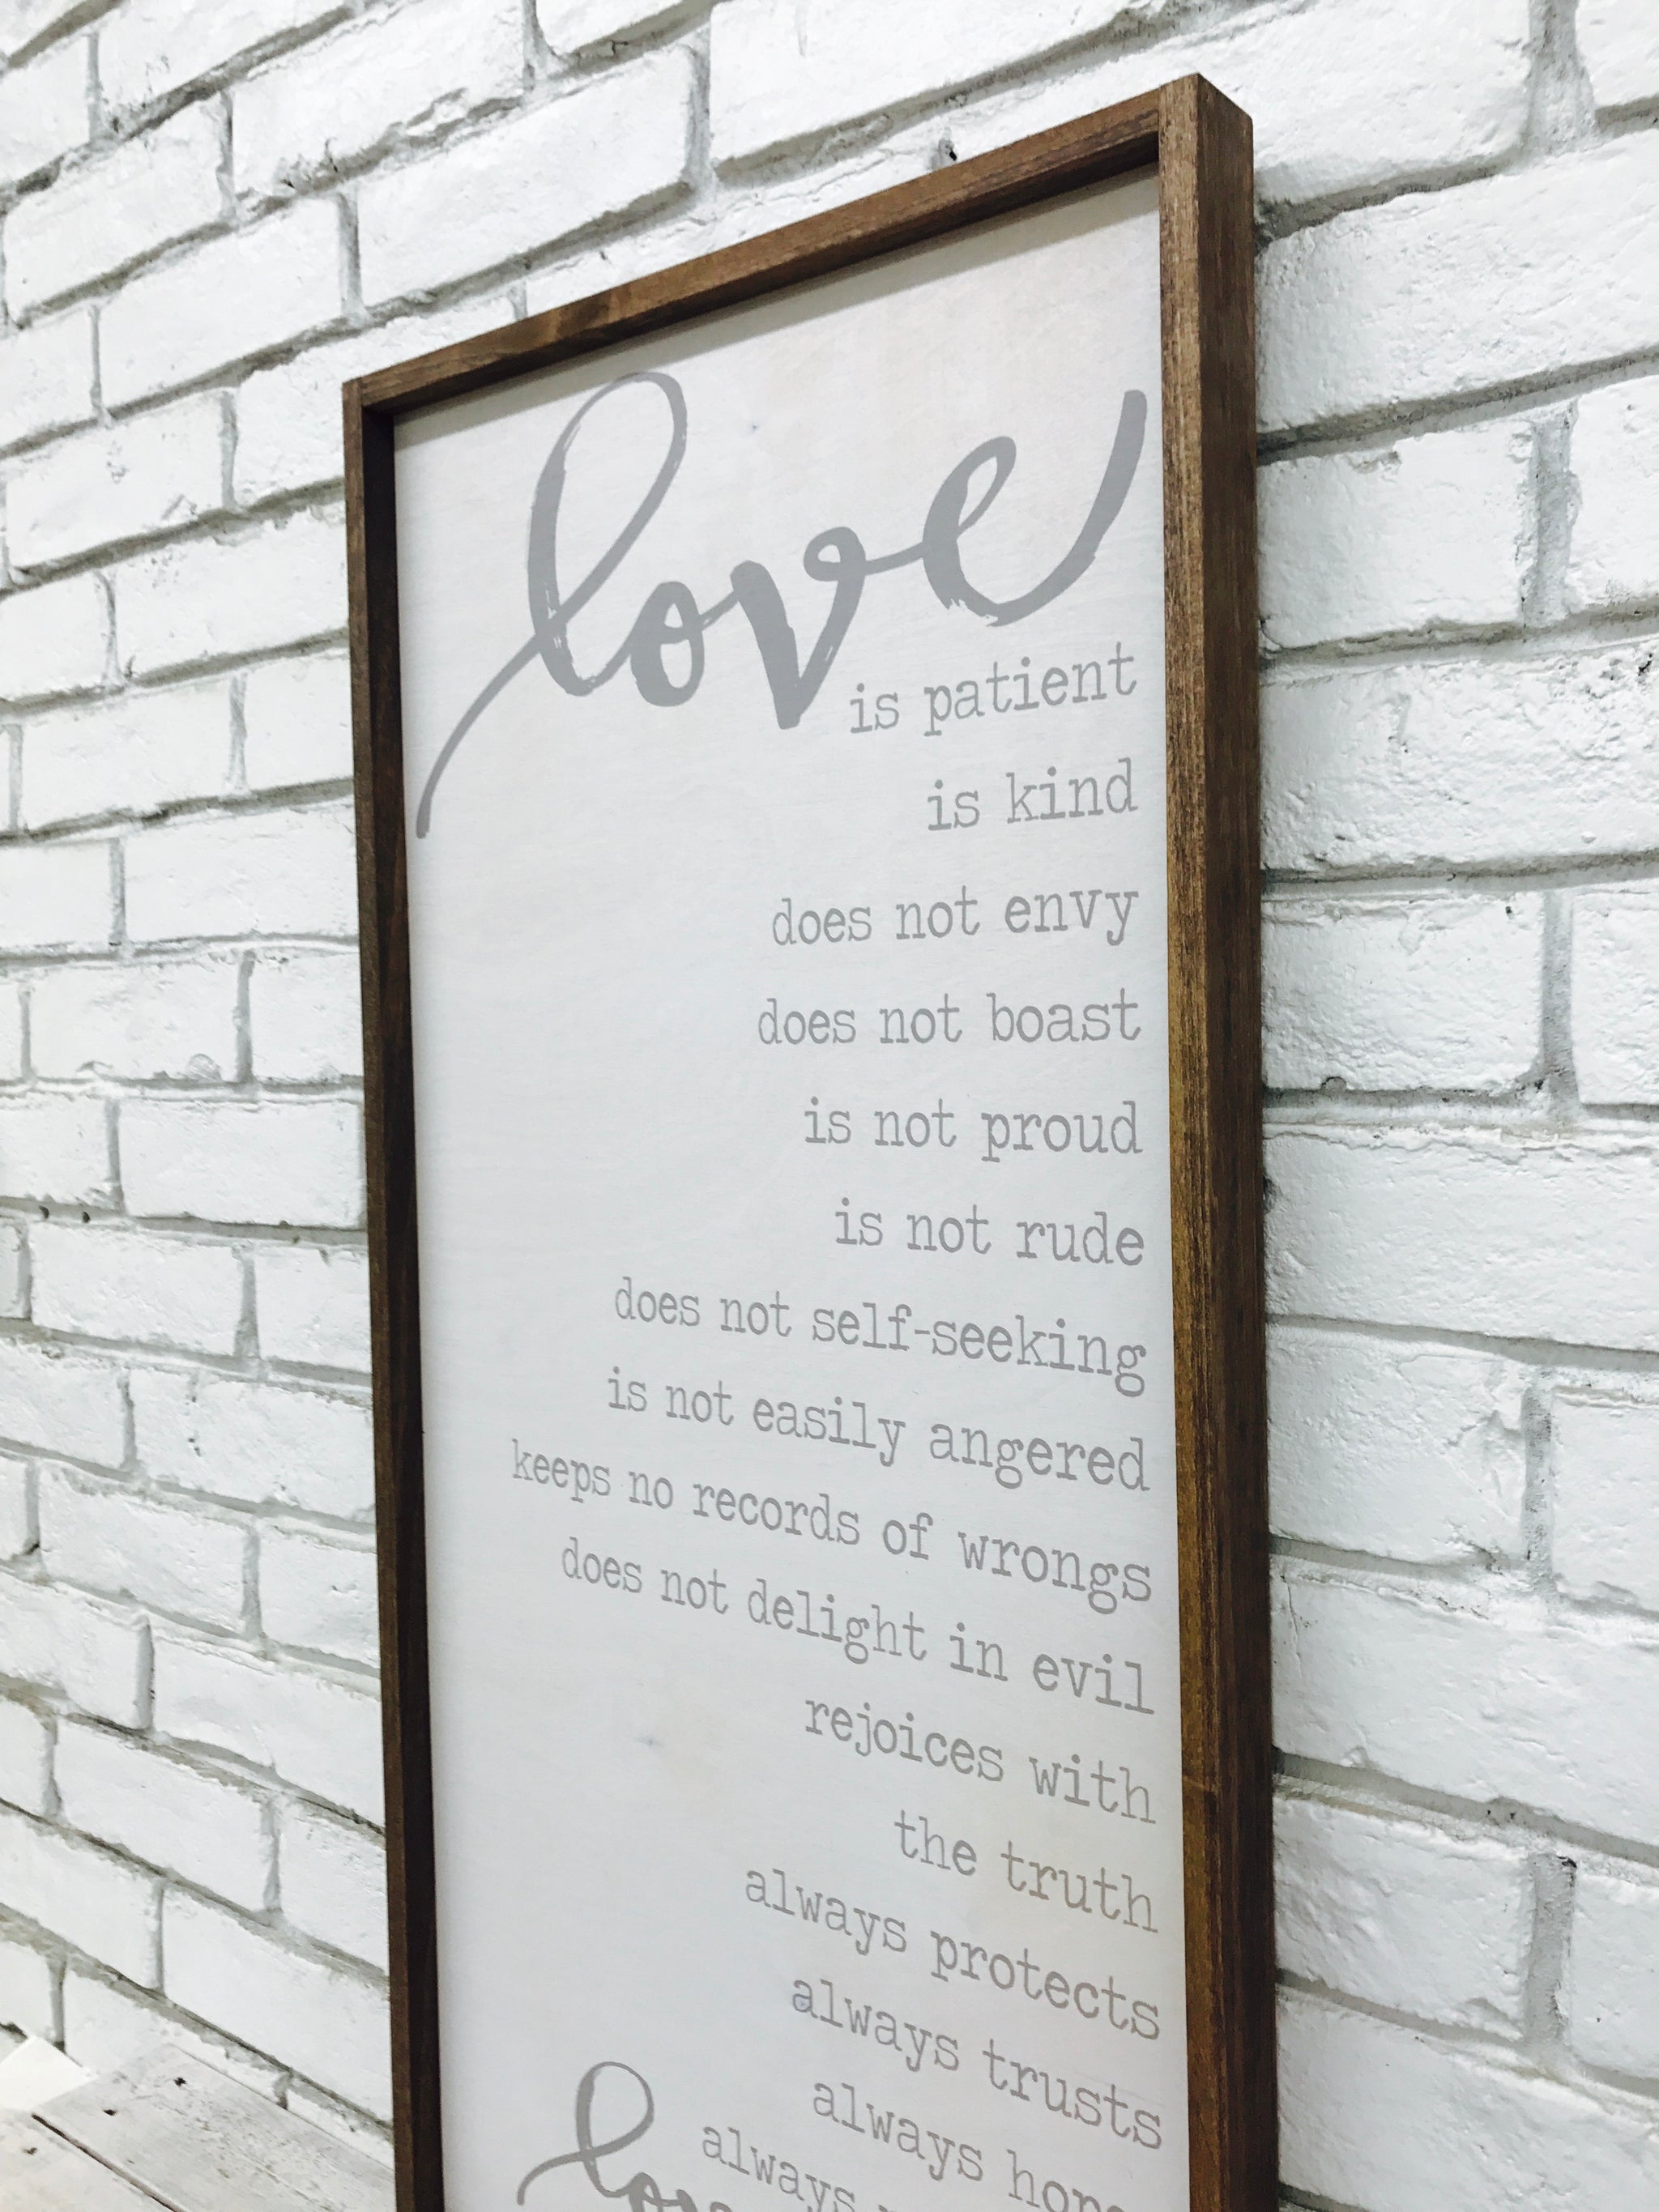 love
is patient
is kind
does not envy
does not boast
is not proud
is not rude
does not self-seeking
is not easily angered
keeps no records of wrongs
does not delight in evil
rejoices with
the truth
always protects
always trusts
always
always